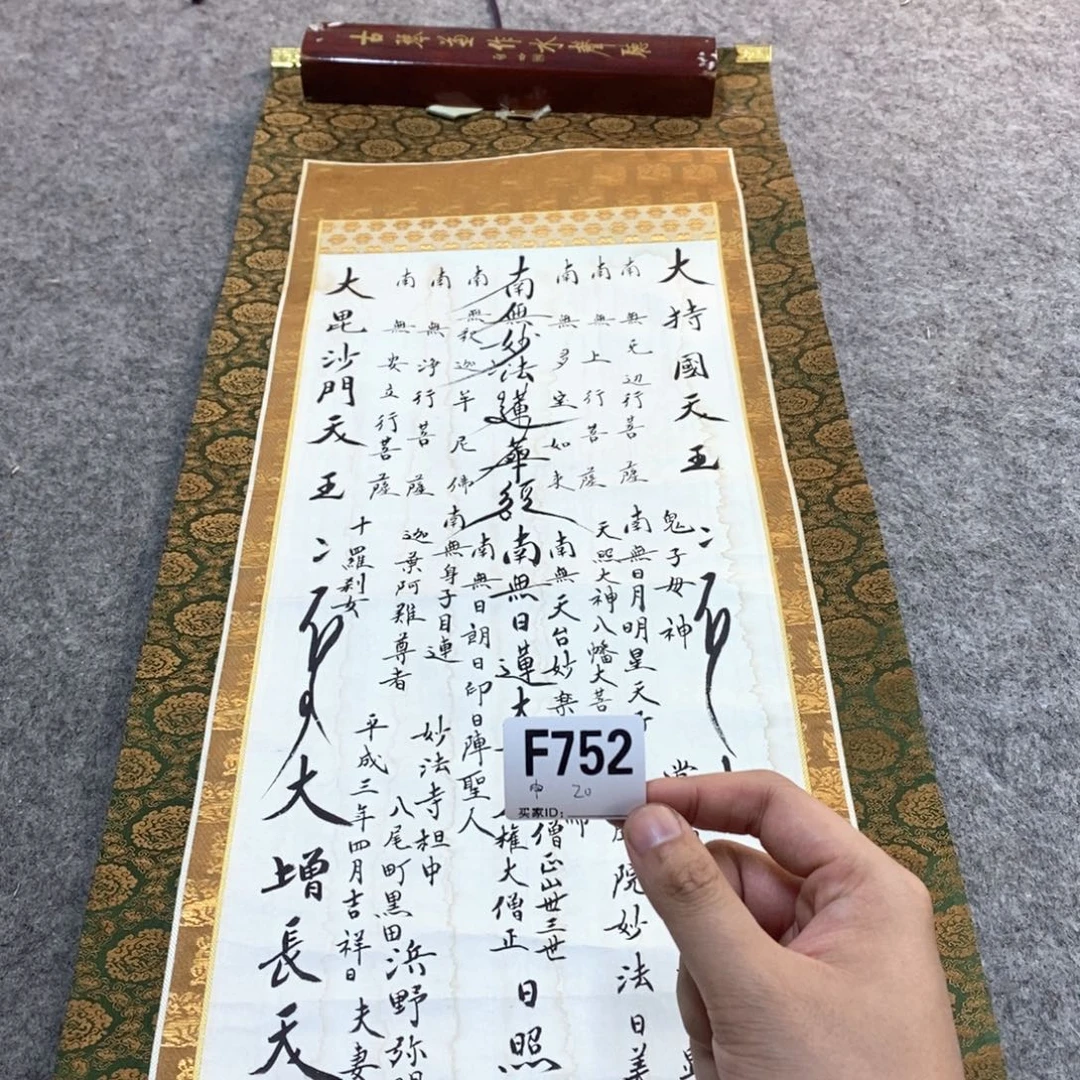 大持國天王
南無無辺行菩薩
南無上行菩薩
南無多宝如来
南無妙法蓮華経
南無釈迦牟尼佛
南無浄行菩薩
南無安立行菩薩
大毘沙門天王
鬼子母神
南無日月明星天子
天照大神八幡大菩
南無天台妙楽
南無日蓮大
南無日朗日印日陣聖人
南無身子目連
迦葉阿難尊者
十羅刹女
僧正山世三世
権大僧正日照
院妙法日
妙法寺担中
八尾町黒田浜野弥
平成三年四月吉祥日夫妻
大增長天
F752
中 20
买家ID: